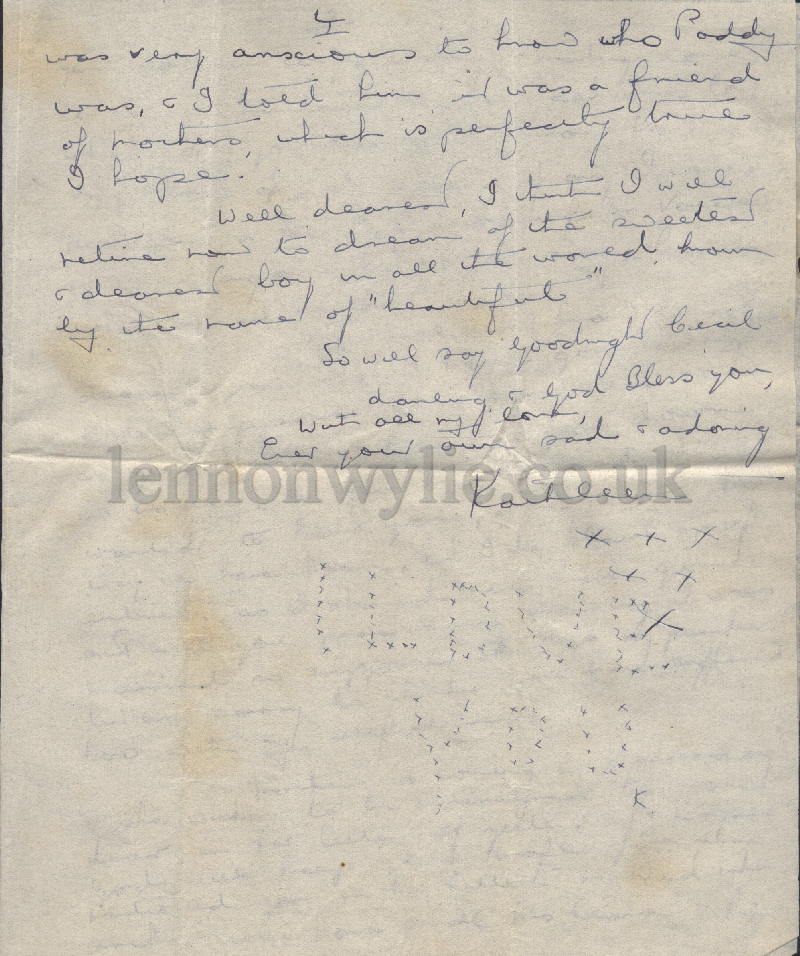 4
was very anxcious to know who Paddy
was, & I told him it was a friend
of mothers, which is perfectly true
I hope.
Well dearest, I think I will
retire now to dream of the sweetest
& dearest boy in all the world, known
by the name of "beautiful"
So will say goodnight Cecil
darling & God Bless you,
With all my love,
Ever your own sad & adoring
Kathleen
lennonwylie.co.uk
x x x
x x
x
I LOVE
YOU
K.